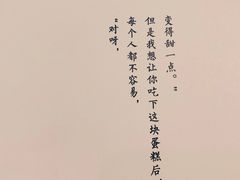 “对呀，
每个人都不容易，
但是我想让你吃下这块蛋糕后，
变得甜一点。”